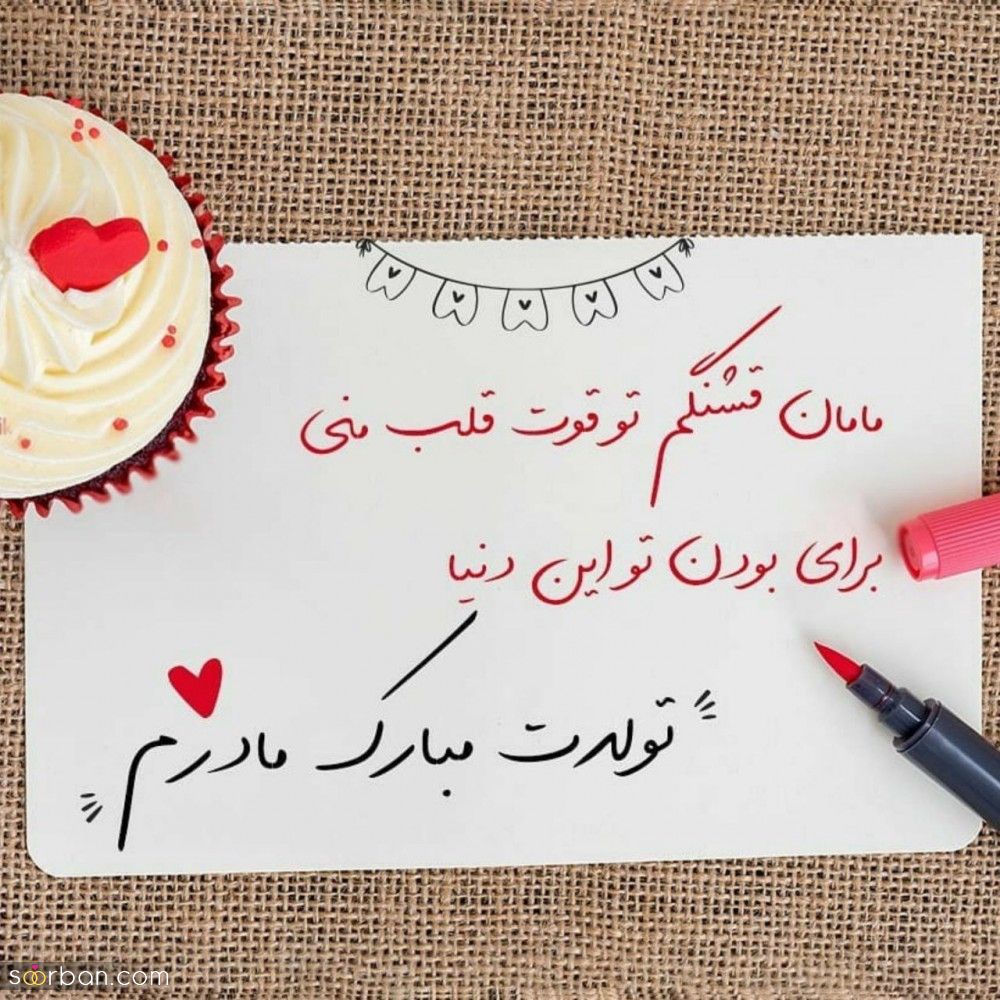 مامان قشنگم تو قوت قلب منی
برای بودن تو این دنیا
تولدت مبارک مادرم
soorban.com